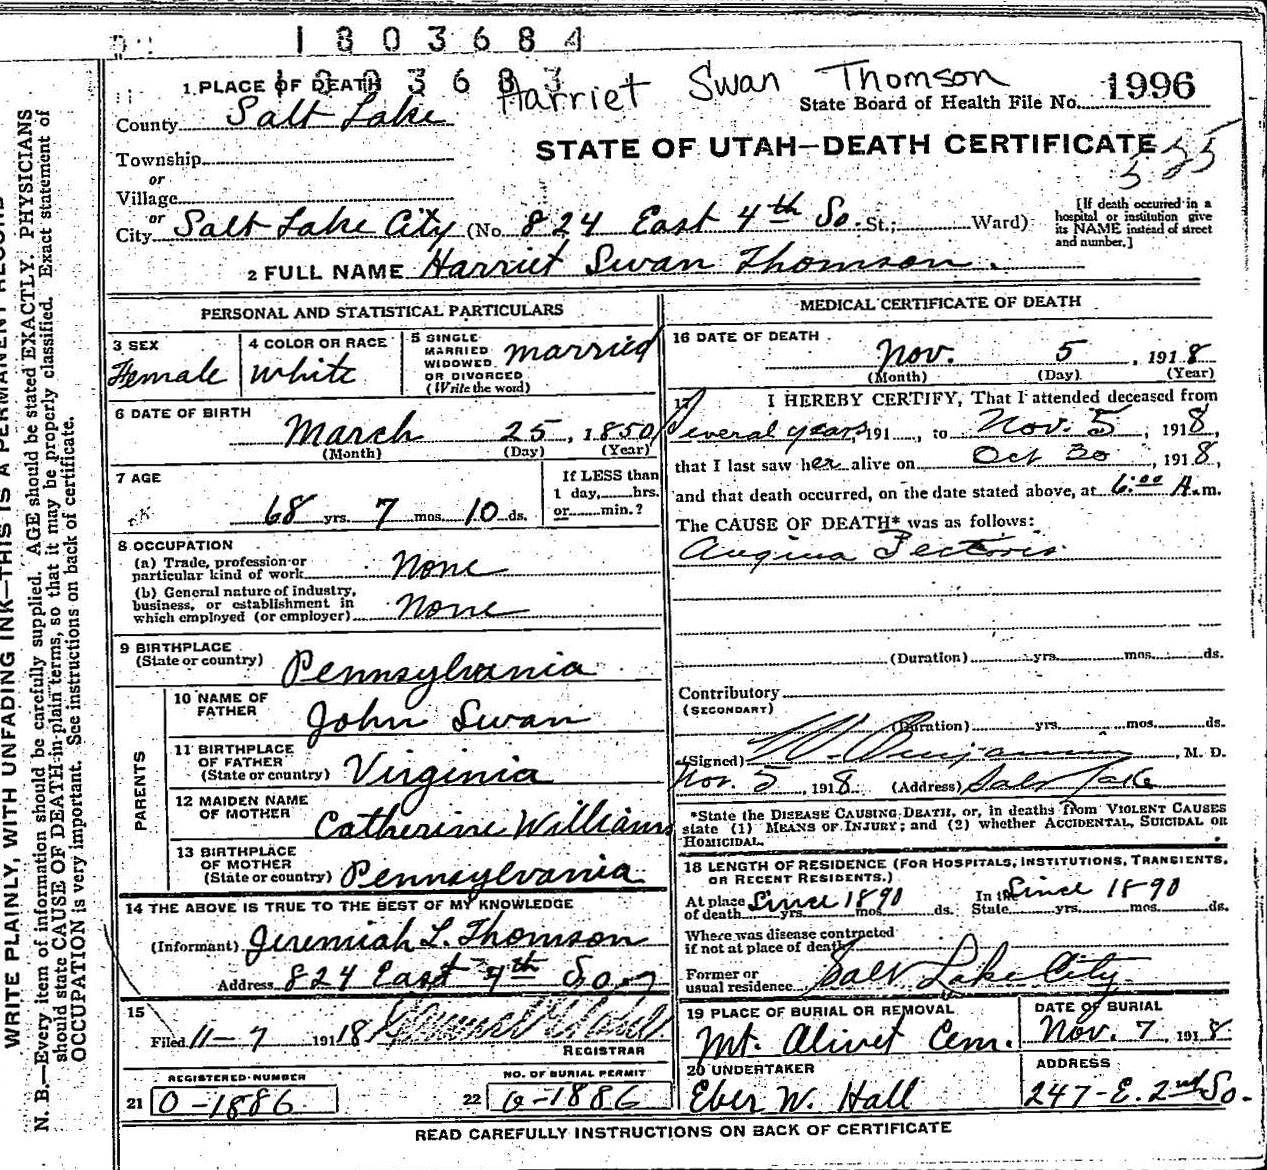 1803684
1803683
Harriet Swan Thomson
1 PLACE OF DEATH
County Salt Lake
State Board of Health File No. 1996
Township
or
Village
or
City Salt Lake City (No. 824 East 4th So. St.; Ward)
STATE OF UTAH—DEATH CERTIFICATE
525
[If death occurred in a
hospital or institution give
its NAME instead of street
and number.]
2 FULL NAME Harriet Swan Thomson.
PERSONAL AND STATISTICAL PARTICULARS
3 SEX
Female
4 COLOR OR RACE
White
5 SINGLE
MARRIED
WIDOWED
OR DIVORCED
(Write the word)
married
6 DATE OF BIRTH
March 25, 1850
(Month) (Day) (Year)
7 AGE
68 yrs. 7 mos. 10 ds.
If LESS than
1 day, hrs.
or min.?
8 OCCUPATION
(a) Trade, profession or
particular kind of work None
(b) General nature of industry,
business, or establishment in
which employed (or employer) None
9 BIRTHPLACE
(State or country) Pennsylvania
PARENTS
10 NAME OF
FATHER John Swan
11 BIRTHPLACE
OF FATHER
(State or country) Virginia
12 MAIDEN NAME
OF MOTHER Catherine Williams
13 BIRTHPLACE
OF MOTHER
(State or country) Pennsylvania
14 THE ABOVE IS TRUE TO THE BEST OF MY KNOWLEDGE
(Informant) Jeremiah L. Thomson
Address 824 East 4th So
15
Filed 11-7 191 18
REGISTRAR
REGISTERED NUMBER
21 0-1886
NO. OF BURIAL PERMIT
22 0-1886
MEDICAL CERTIFICATE OF DEATH
16 DATE OF DEATH
Nov. 5, 1918
(Month) (Day) (Year)
17 I HEREBY CERTIFY, That I attended deceased from
Several years, 191 , to Nov. 5, 1918,
that I last saw her alive on Oct 30, 1918,
and that death occurred, on the date stated above, at 6:00 A.m.
The CAUSE OF DEATH* was as follows:
Angina Pectoris
(Duration) yrs. mos. ds.
Contributory
(SECONDARY)
(Duration) yrs. mos. ds.
(Signed) , M. D.
Nov. 5, 1918 (Address) Salt Lake
*State the DISEASE CAUSING DEATH, or, in deaths from VIOLENT CAUSES
state (1) MEANS OF INJURY; and (2) whether ACCIDENTAL, SUICIDAL OR
HOMICIDAL.
18 LENGTH OF RESIDENCE (FOR HOSPITALS, INSTITUTIONS, TRANSIENTS,
OR RECENT RESIDENTS.)
At place
of death Since 1890 yrs. mos. ds.
In the
State Since 1890 yrs. mos. ds.
Where was disease contracted
if not at place of death
Former or
usual residence Salt Lake City
19 PLACE OF BURIAL OR REMOVAL
Mt. Olivet Cem.
DATE OF BURIAL
Nov. 7, 1918
20 UNDERTAKER
Eber W. Hall
ADDRESS
247-E. 2nd So.
READ CAREFULLY INSTRUCTIONS ON BACK OF CERTIFICATE
WRITE PLAINLY, WITH UNFADING INK—THIS IS A PERMANENT RECORD
N. B.—Every item of information should be carefully supplied. AGE should be stated EXACTLY. PHYSICIANS
should state CAUSE OF DEATH in plain terms, so that it may be properly classified. Exact statement of
OCCUPATION is very important. See instructions on back of certificate.